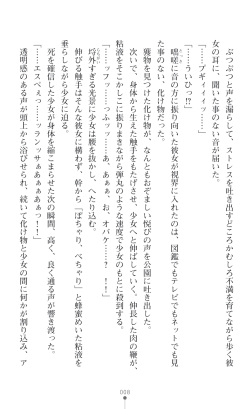 ぶつぶつと声を漏らして、ストレスを吐き出すどころかむしろ不満を育てながら歩く彼
女の耳に、聞いた事のない音が届いた。
「……プギィィィッ……」
「……ういひっ!?」
嗟嗟に音の方に振り向いた彼女が視界に入れたのは、図鑑でもテレビでもネットでも見
た事のない、化け物だった。
獲物を見つけた化け物が、なんともおぞましい悦びの声を公園に吐き出した。
次いで、身体から生えた触手をもたげさせ、少女へと伸ばしていく。伸長した肉の鞭が、
粘液をそこかしこに振りまきながら弾丸のような速度で少女のもとに殺到する。
「……ッフッ……っふッッ……あ、あぁぁ、お、オバケ……?　!!」
埒外すぎる光景に少女は腰を抜かし、へたり込む。
伸びる触手はそんな彼女に構わず、幹から「ぼちゃり、べちゃり」と蜂蜜めいた粘液を
垂らしながら少女に迫る。
死を確信した少女が身体を縮こまらせた次の瞬間、高く、良く通る声が響き渡った。
「……エスペぇっ……ッランッサぁあぁぁあぁっ!!」
透明感のある声が頭上から浴びせられ、続いて化け物と少女の間に何かが割り込み、ア
008